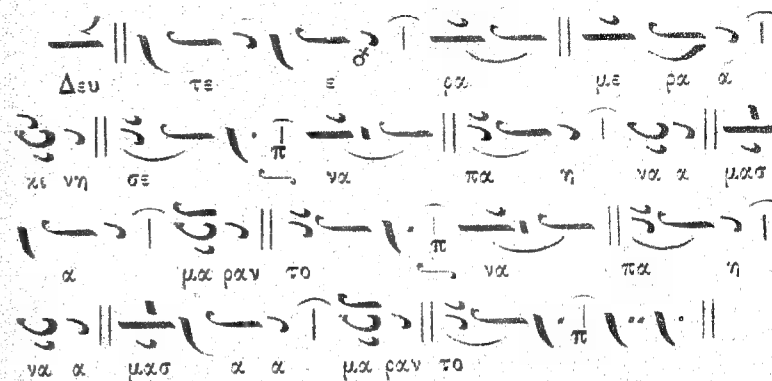 Δευ τε ε ρα με ρα α
κει νη σε π να πα η να α μασ
α μα ραν το π να πα η
να α μασ α α μα ραν το π